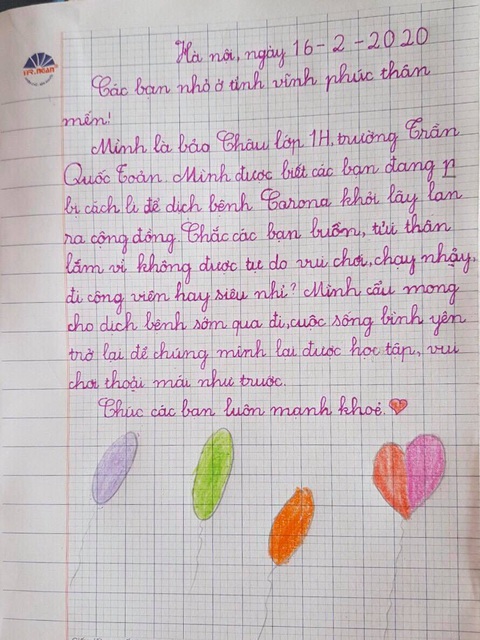 HR.NGÂN
Hà nội, ngày 16-2-2020
Các bạn nhỏ ở tỉnh vĩnh phúc thân
mến!
Mình là bảo Châu lớp 1H, trường Trần
Quốc Toản. Mình được biết các bạn đang p
bị cách li để dịch bệnh Carona khỏi lây lan
ra cộng đồng. Chắc các bạn buồn, tủi thân
lắm vì không được tự do vui chơi, chạy nhảy,
đi công viên hay siêu nhị? Mình cầu mong
cho dịch bệnh sớm qua đi, cuộc sống bình yên
trở lại để chúng mình lại được học tập, vui
chơi thoải mái như trước.
Chúc các bạn luôn mạnh khoẻ.